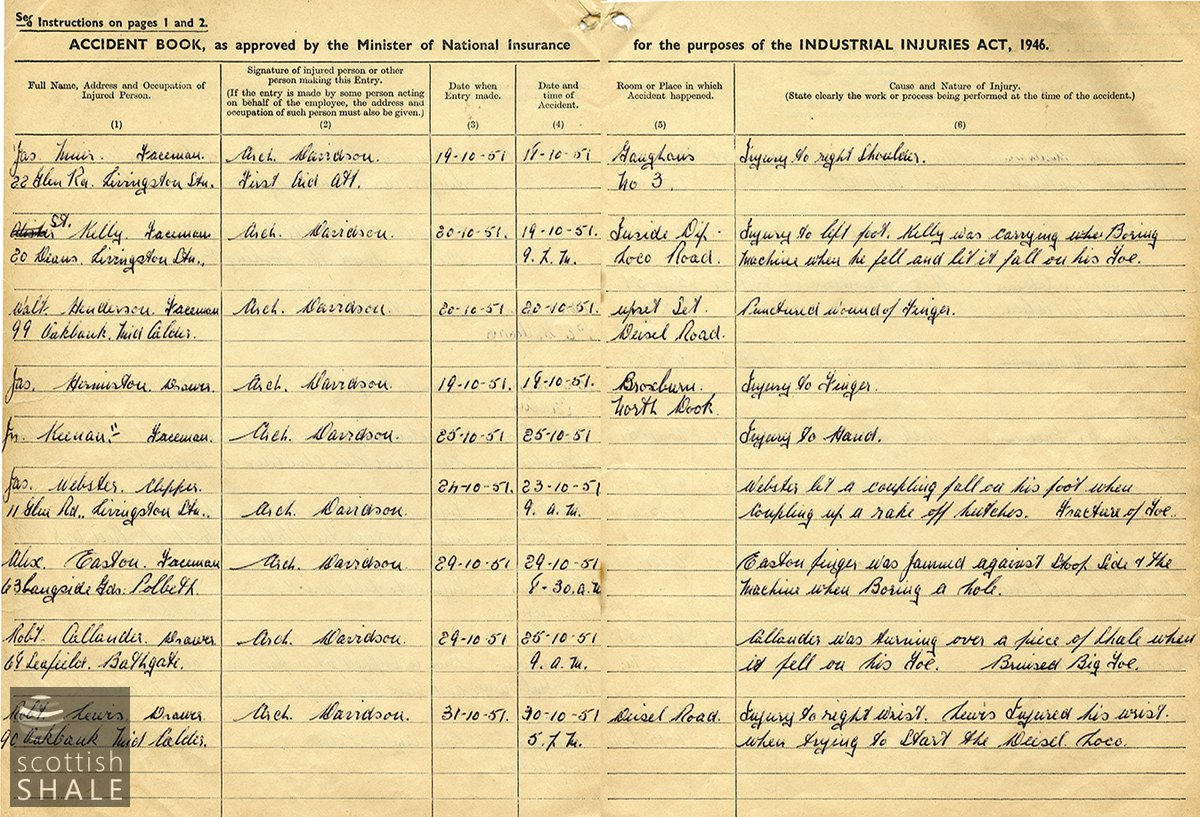 See Instructions on pages 1 and 2.
ACCIDENT BOOK, as approved by the Minister of National Insurance for the purposes of the INDUSTRIAL INJURIES ACT, 1946.
Full Name, Address and Occupation of Injured Person.
(1)
Signature of injured person or other person making this Entry.
(If the entry is made by some person acting on behalf of the employee, the address and occupation of such person must also be given.)
(2)
Date when Entry made.
(3)
Date and time of Accident.
(4)
Room or Place in which Accident happened.
(5)
Cause and Nature of Injury.
(State clearly the work or process being performed at the time of the accident.)
(6)
Jas. Muir. Faceman. Arch. Davidson. 19-10-51 18-10-51 Gaughan's Injury to right Shoulder.
22 Glen Rd. Livingston Stn. First Aid Att. No 3.
St. Kelly. Faceman Arch. Davidson. 20-10-51. 19-10-51. Inside Dip - Injury to left foot. Kelly was carrying when Boring
20 Deans. Livingston Stn., 9. P.M. Loco Road. Machine when he fell and let it fall on his Toe.
Walt. Henderson. Faceman Arch. Davidson. 20-10-51 20-10-51. upset Set. Punctured wound of Finger.
99 Oakbank. Mid Calder. Deisel Road.
Jas. Hermiston. Drawer. Arch. Davidson. 19-10-51. 18-10-51. Broxburn. Injury to Finger.
North Dook.
Jn. Keenan. Faceman. Arch. Davidson. 25-10-51 25-10-51 Injury to Hand.
Jas. Webster. Clipper. 24-10-51. 23-10-51 Webster let a coupling fall on his foot when
11 Glen Rd., Livingston Stn., Arch. Davidson. 9. a.m. coupling up a rake off hutches. Fracture of Toe.
Alex. Easton. Faceman Arch. Davidson. 29-10-51 29-10-51 Easton finger was Jammed against Stoop Side & the
63 Langside Gdns. Polbeth. 8-30.a.m Machine when Boring a hole.
Robt. Callander. Drawer Arch. Davidson. 29-10-51. 25-10-51 Callander was turning over a piece of Shale when
69 Leafield. Bathgate. 9. a.m. it fell on his Toe. Bruised Big Toe.
Robt. Lewis. Drawer Arch. Davidson. 31-10-51. 30-10-51 Deisel Road. Injury to right wrist. Lewis Injured his wrist.
90 Oakbank Mid Calder. 5. P.M. when trying to Start the Deisel Loco.
scottish
SHALE